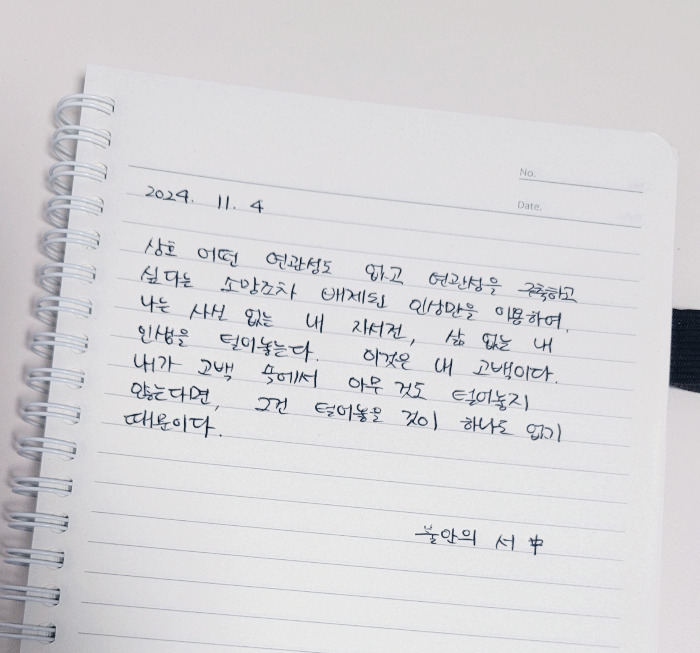 No.
Date.
2024. 11. 4
상호 어떤 연관성도 없고 연관성을 구축하고
싶다는 소망조차 배제된 인상만을 이용하여,
나는 사실 없는 내 자서전, 삶 없는 내
인생을 털어놓는다. 이것은 내 고백이다.
내가 고백 속에서 아무 것도 털어놓지
않는다면, 그건 털어놓을 것이 하나도 없기
때문이다.
불안의 서 中